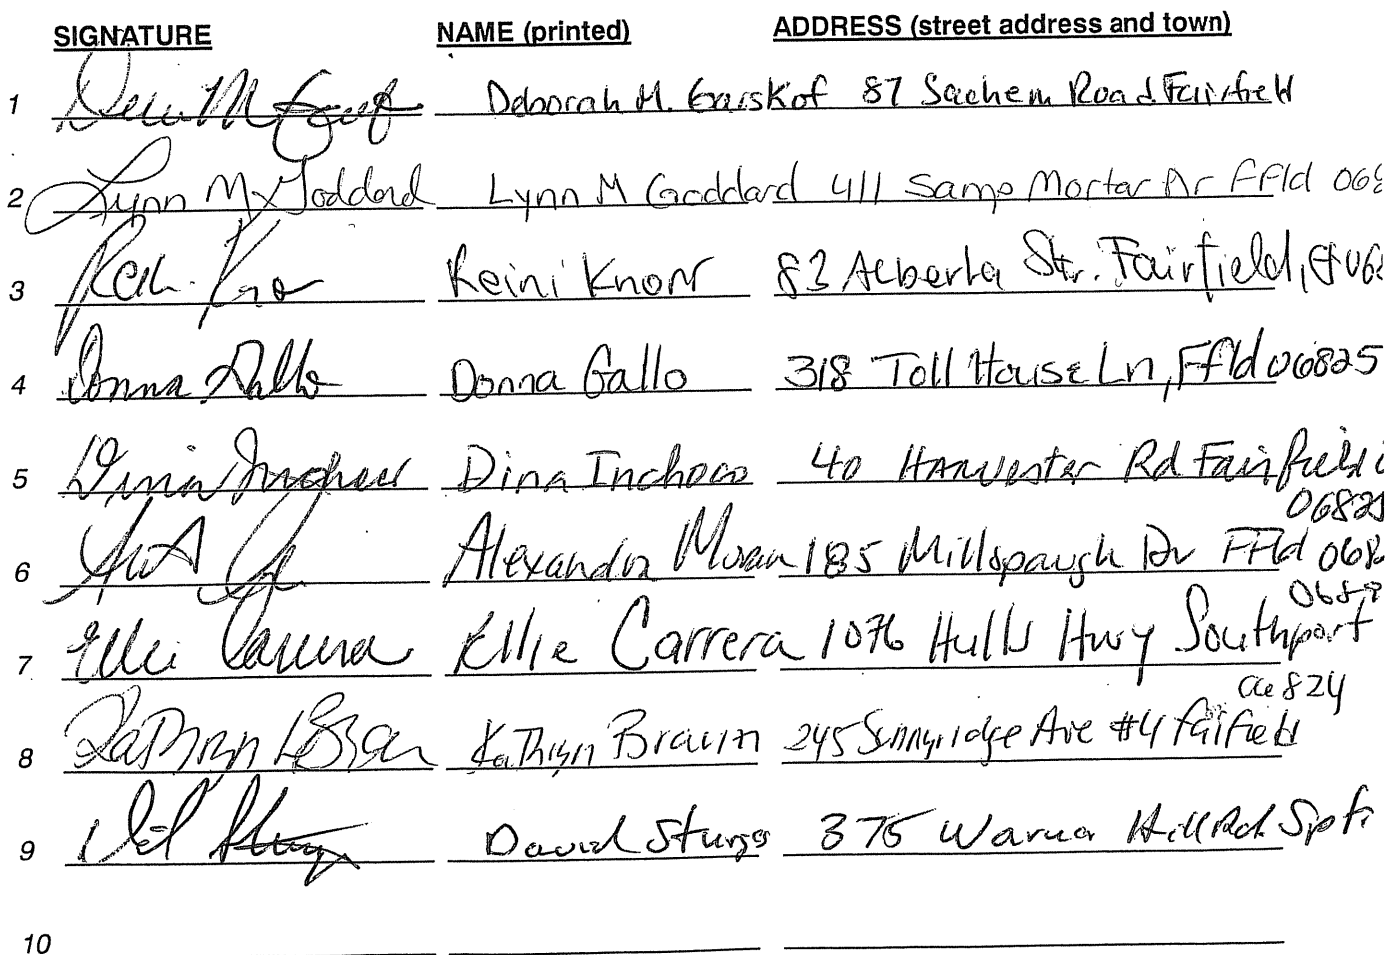 SIGNATURE NAME (printed) ADDRESS (street address and town)
1 Deborah M. Garskof 87 Sachem Road Fairfield
2 Lynn M Goddard Lynn M Goddard 411 Samp Mortar Dr Ffld 068
3 Reini Knorr 83 Alberta Str. Fairfield, CT 068
4 Donna Gallo Donna Gallo 318 Toll House Ln, Ffld 06825
5 Dina Dina Inchoco 40 Harvester Rd Fairfield
06825
6 Alexandra Moran 185 Millspaugh Dr FFld 068
0689
7 Ellie Carrera Ellie Carrera 1076 Hulls Hwy Southport
06824
8 Kathryn L Braun Kathryn Braun 245 Sunnyridge Ave #4 Fairfield
9 David Sturges 375 Warner Hill Rd. Spt
10